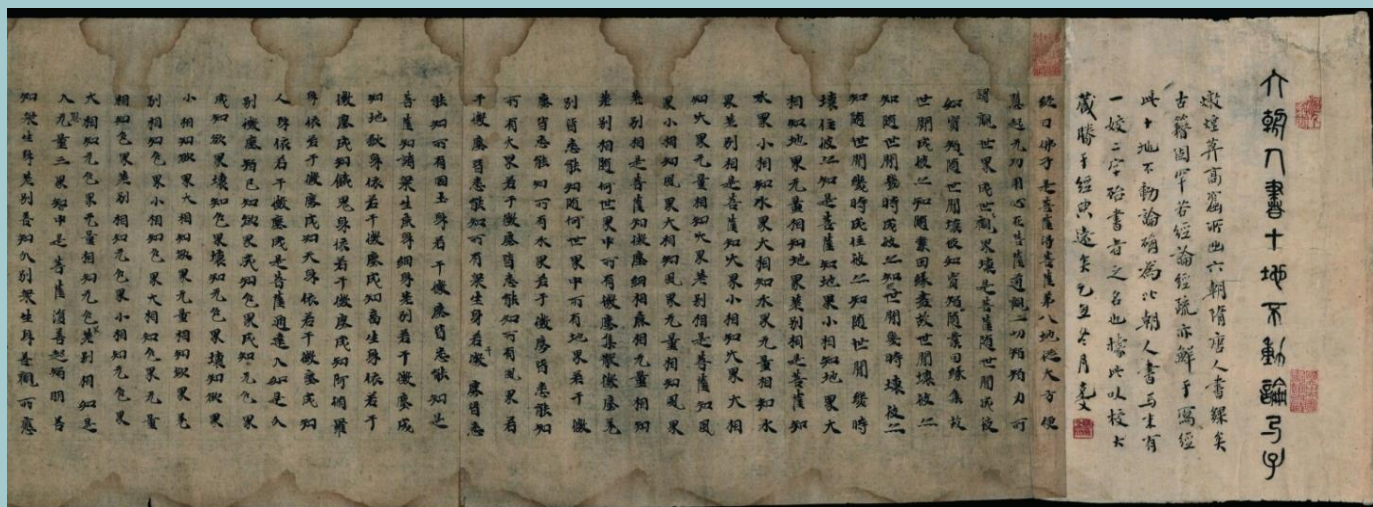 六朝人書十地不動論弓子
燉煌莫高窟所出六朝隋唐人書矣
古籍固罕若經論經疏亦鮮于寫經
此十地不動論確為北朝人書末有
一姣二字殆書者之名也據此以校大
藏勝于經史遠矣乙丑冬月
經曰佛子是菩薩得菩薩第八地從大方便
慧起无功用心在菩薩道觀一切智智力所
謂觀世界成世界壞是菩薩隨世間成故
如實知隨世間壞故如實知隨業因緣集故
世間成彼亦知隨業因緣盡故世間壞彼亦
知隨世間幾時成彼亦知世間幾時壞彼亦
知隨世間幾時成住彼亦知隨世間幾時
壞住彼亦知是菩薩知地界小相知地界大
相知地界无量相知地界差別相是菩薩知
水界小相知水界大相知水界无量相知水
界差別相是菩薩知火界小相知火界大相
知火界无量相知火界差別相是菩薩知風
界小相知風界大相知風界无量相知風界
差別相是菩薩知微塵細相麁相无量相知
差別相隨何世界中所有微塵集散微塵差
別皆悉能知隨何世界中所有地界若干微
塵皆悉能知所有水界若干微塵皆悉能知
所有火界若干微塵皆悉能知所有風界若
干微塵皆悉能知所有眾生身若干微塵皆悉
能知所有國土身若干微塵皆悉能知是
菩薩知諸眾生麁身細身差別若干微塵成
知地獄身依若干微塵成知畜生身依若干
微塵成知餓鬼身依若干微塵成知阿脩羅
身依若干微塵成知天身依若干微塵成知
人身依若干微塵成是菩薩通達入如是分
別微塵智已知欲界成知色界成知无色界
成知欲界壞知色界壞知无色界壞知欲界
小相知欲界大相知欲界无量相知欲界差
別相知色界小相知色界大相知色界无量
相知色界差別相知无色界小相知无色界
大相知无色界无量相知无色差別相如是
入无量三界知中是菩薩復善起智明善
知眾生身差別善知分別眾生身善觀所應